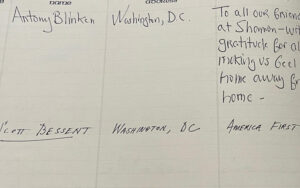 name address
Antony Blinken Washington, D.C. To all our friends
at Shannon - with
gratitude for all
making us feel
home away fr
home -
Scott Bessent Washington, DC America First